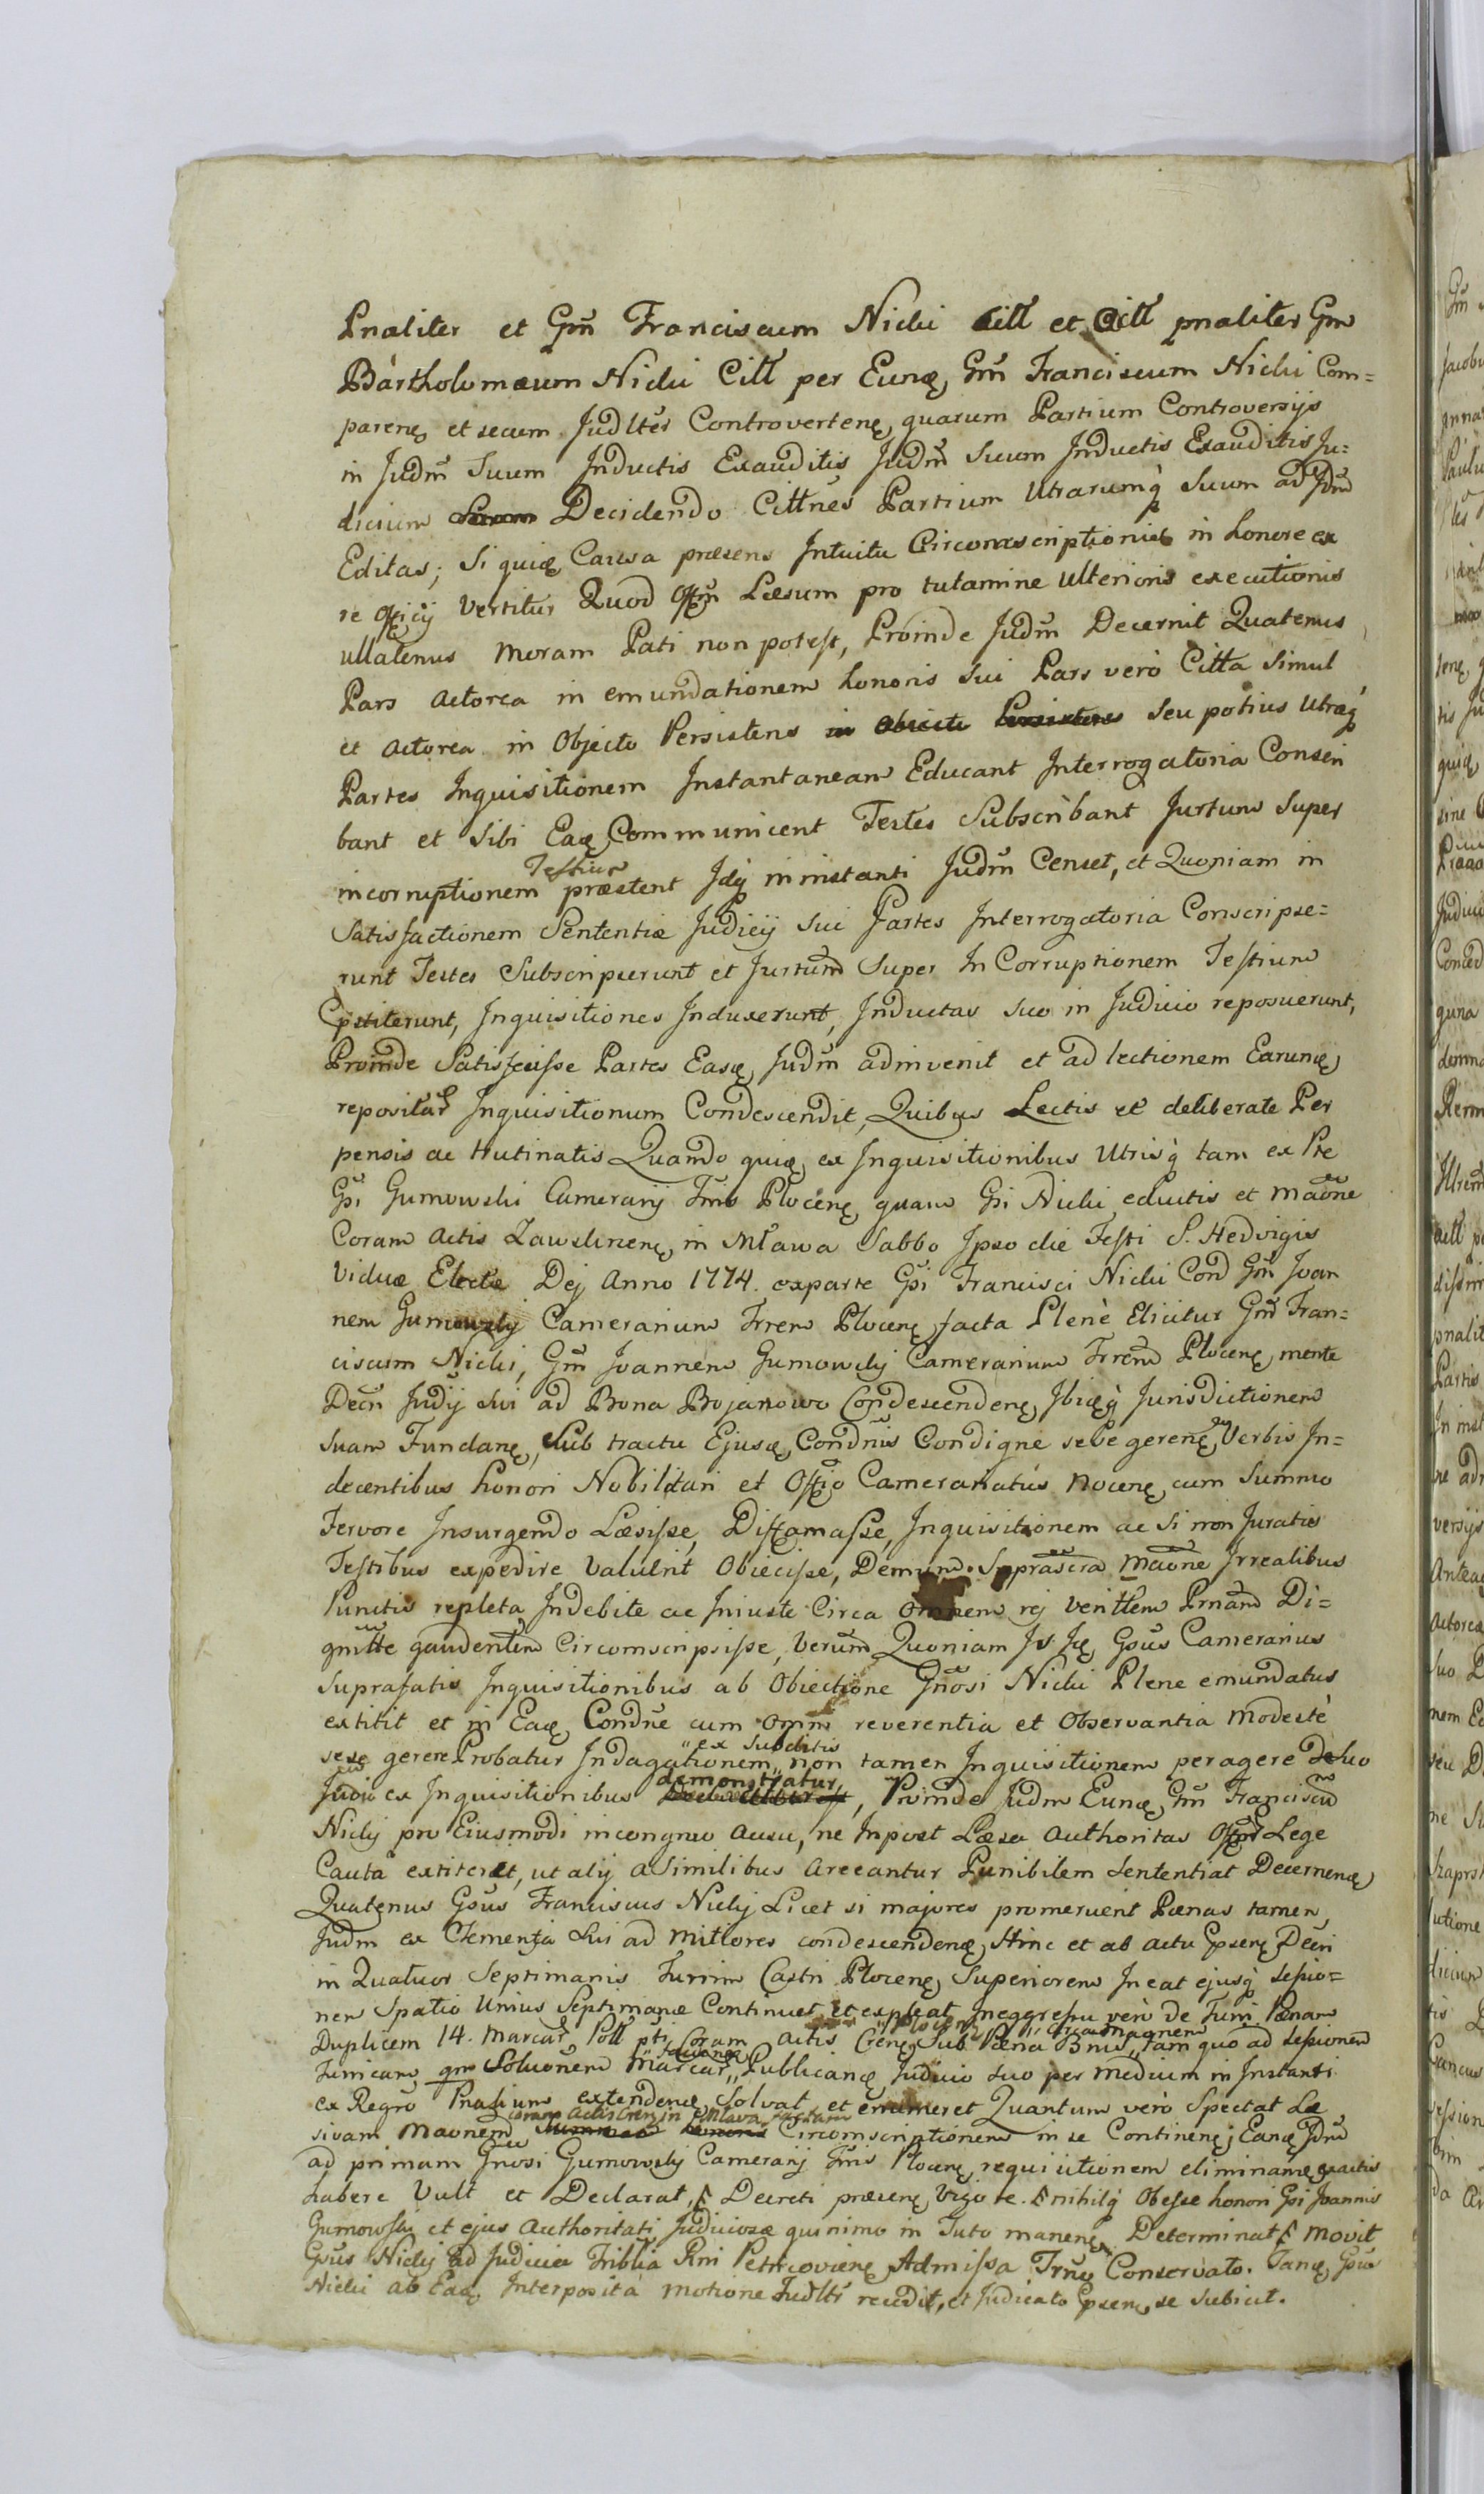 Pnaliter et Gm̃ Franciscum Nicki Citt et Citt pnaliter Gm
Bartholomæum Nicki Citt per Eunꝗ Gm̃ Franciscum Nicki Com=
parenꝗ et secum Judlter Controvertenꝗ quarum Partium Controversijs
in Judm̃ Suum Inductis Exauditis Judm̃ Suum Inductis Exauditis Ju=
dicium Decidendo Cittnes Partium Utrarumq̀ Suum ad Jdm̃
Editas; Si quidꝗ Causa præsens Intuitu Circomscriptionis in honore ex
re Officij Vertitur Quod Offm̃ Læsum pro tutamine Ulterioris executionis
ullatenus moram Pati non potest, Proinde Judm̃ Decernit Quatenus
Pars Actorea in emundationem honoris sui Pars verò Citta Simul
et Actorea in Objecto Persistens in Obiecto Persistens Seu potius Utræq́
Partes Inquisitionem Instantanean Educant Interrogatoria Conscri
bant et Sibi Eaꝗ Communicent Testes Subscribant Jurtum Super
incorruptionem Testium præstent Idq̀ in instanti Judm̃ Censet, et Quoniam in
Satisfactionem Sententiæ Judicij sui Partes Interrogatoria Conscripse=
runt Testes Subscripserunt et Jurtum Super In Corruptionem Testium
Epstiterunt, Inquisitiones Induxerunt, Inductas suo in Judicio reposuerunt,
Proinde Satisfecisse Partes Easꝗ Judm̃ adinvenit et ad lectionem Earunꝗ
repositar Inquisitionum Condescendit, Quibus Lectis et deliberate Per
pensis ac trutinatis Quando quidꝗ ex Inquisitionibus Utrisq̀ tam ex Pte
Gsi Gumowski Camerarij Trris Plocenꝗ quam Gsi Nicki eductis et maone
Coram Actis Zawslinenꝗ in Mława Sabbo Ipso die Festi S. Hedvigis
Viduæ Electæ Dej Anno 1774. exparte Gsi Francisci Nicki Cond Gm̃ Joan
nem Gumowskij Camerarium Trrem Plocenꝗ facta Plenè Elicitur Gm̃ Fran=
ciscum Nicki, Gm̃ Joannem Gumowskij Camerarium Trrem Plocenꝗ mente
Decri Judij sui ad Bona Bojanowo Condescendenꝗ Ibidꝗq̀ Jurisdictionem
Suam Fundanꝗ, Sub tractu Ejusꝗ Condnis Condigne sese gerenꝗ Verbis In=
decentibus honori Nobilitari et Offio Camerariatus Nocenꝗ cum Summo
Fervore Insurgendo Læsisse, Diffamasse, Inquisitionem ac si non Juratis
Testibus expedire Voluerit Obiecisse, Demum Supprascra maone Irrealibus
Punctis repleta Indebite ac Iniuste Circa Omnem rej Verittem Prnam Di=
gnitte gaudentem Circomscripsisse, Verum Quoniam Is Iꝗ Gsus Camerarius
Suprafatis Inquisitionibus ab Obiectione Gnosi Nicki Plene emundatus
extitit et in Eaꝗ Condne cum Omni reverentia et Observantia modestè
sese gerere Probatur Indagationem „ex Subditis„ non tamen Inquisitionem peragere De Suo
Judio ex Inquisitionibus demonstratur, Proinde Judm Eunꝗ Gm̃ Franciscum
Nickij pro Eiusmodi incongruo Ausu, ne Inpost Læsa Authoritas Offm̃ Lege
Cauta extiteret, ut alij a Similibus Arceantur Punibilem Sententiat Decernenꝗ
Quatenus Gsus Franciscus Nickij Licet si majores promeruerit Pœnas tamen
Judm ex Clementja Sui ad mitiores condescendenꝗ Hinc et ab actu Epsenꝗ Decri
in Quatuor Septimanis Turrim Castri Plocenꝗ Superiorem Ineat ejusq́ Sessio=
nem Spatio Unius Septimanæ Continuet et expleat Ineggressu verò de Turri Pœnam
Duplicem 14. Marcar Poll pti Coram Actis Crenꝗ „Plocenꝗ Sub Pœna Bnis „Circa magnem tam quo ad Sessionem
Turricam qm Soluonem Marcar „Luendꝗ „Publicanꝗ Judicio suo per medium in Instanti
ex Regro Pnatium extendenꝗ Solvat et ennumeret Quantum verò Spectat Læ
sivam Maonem Coram Actis Cren in Mlava factam Circomscriptionem in se Continenꝗ; Eanꝗ Jdm
ad primam Gnosi Gumowskij Camerarij Trris Plocenꝗ requisitionem eliminanꝗ exactis
habere Vult et Declarat, Decreti præsenꝗ Vigore. nihilq̀ Obesse honori Gsi Joannis
Gumowskj et ejus Authoritati Judiciosæ quinimo in Tuto manenꝗ Determinat movit
Gsus Nickij ad Judicia Triblia Rni Petricoviensꝗ Admissa Trnꝗ Conservato. Tanꝗ Gsus
Nicki ab Eaꝗ Interposita motione Judltr recedit, et Judicato Epsenꝗ se Subiicit.